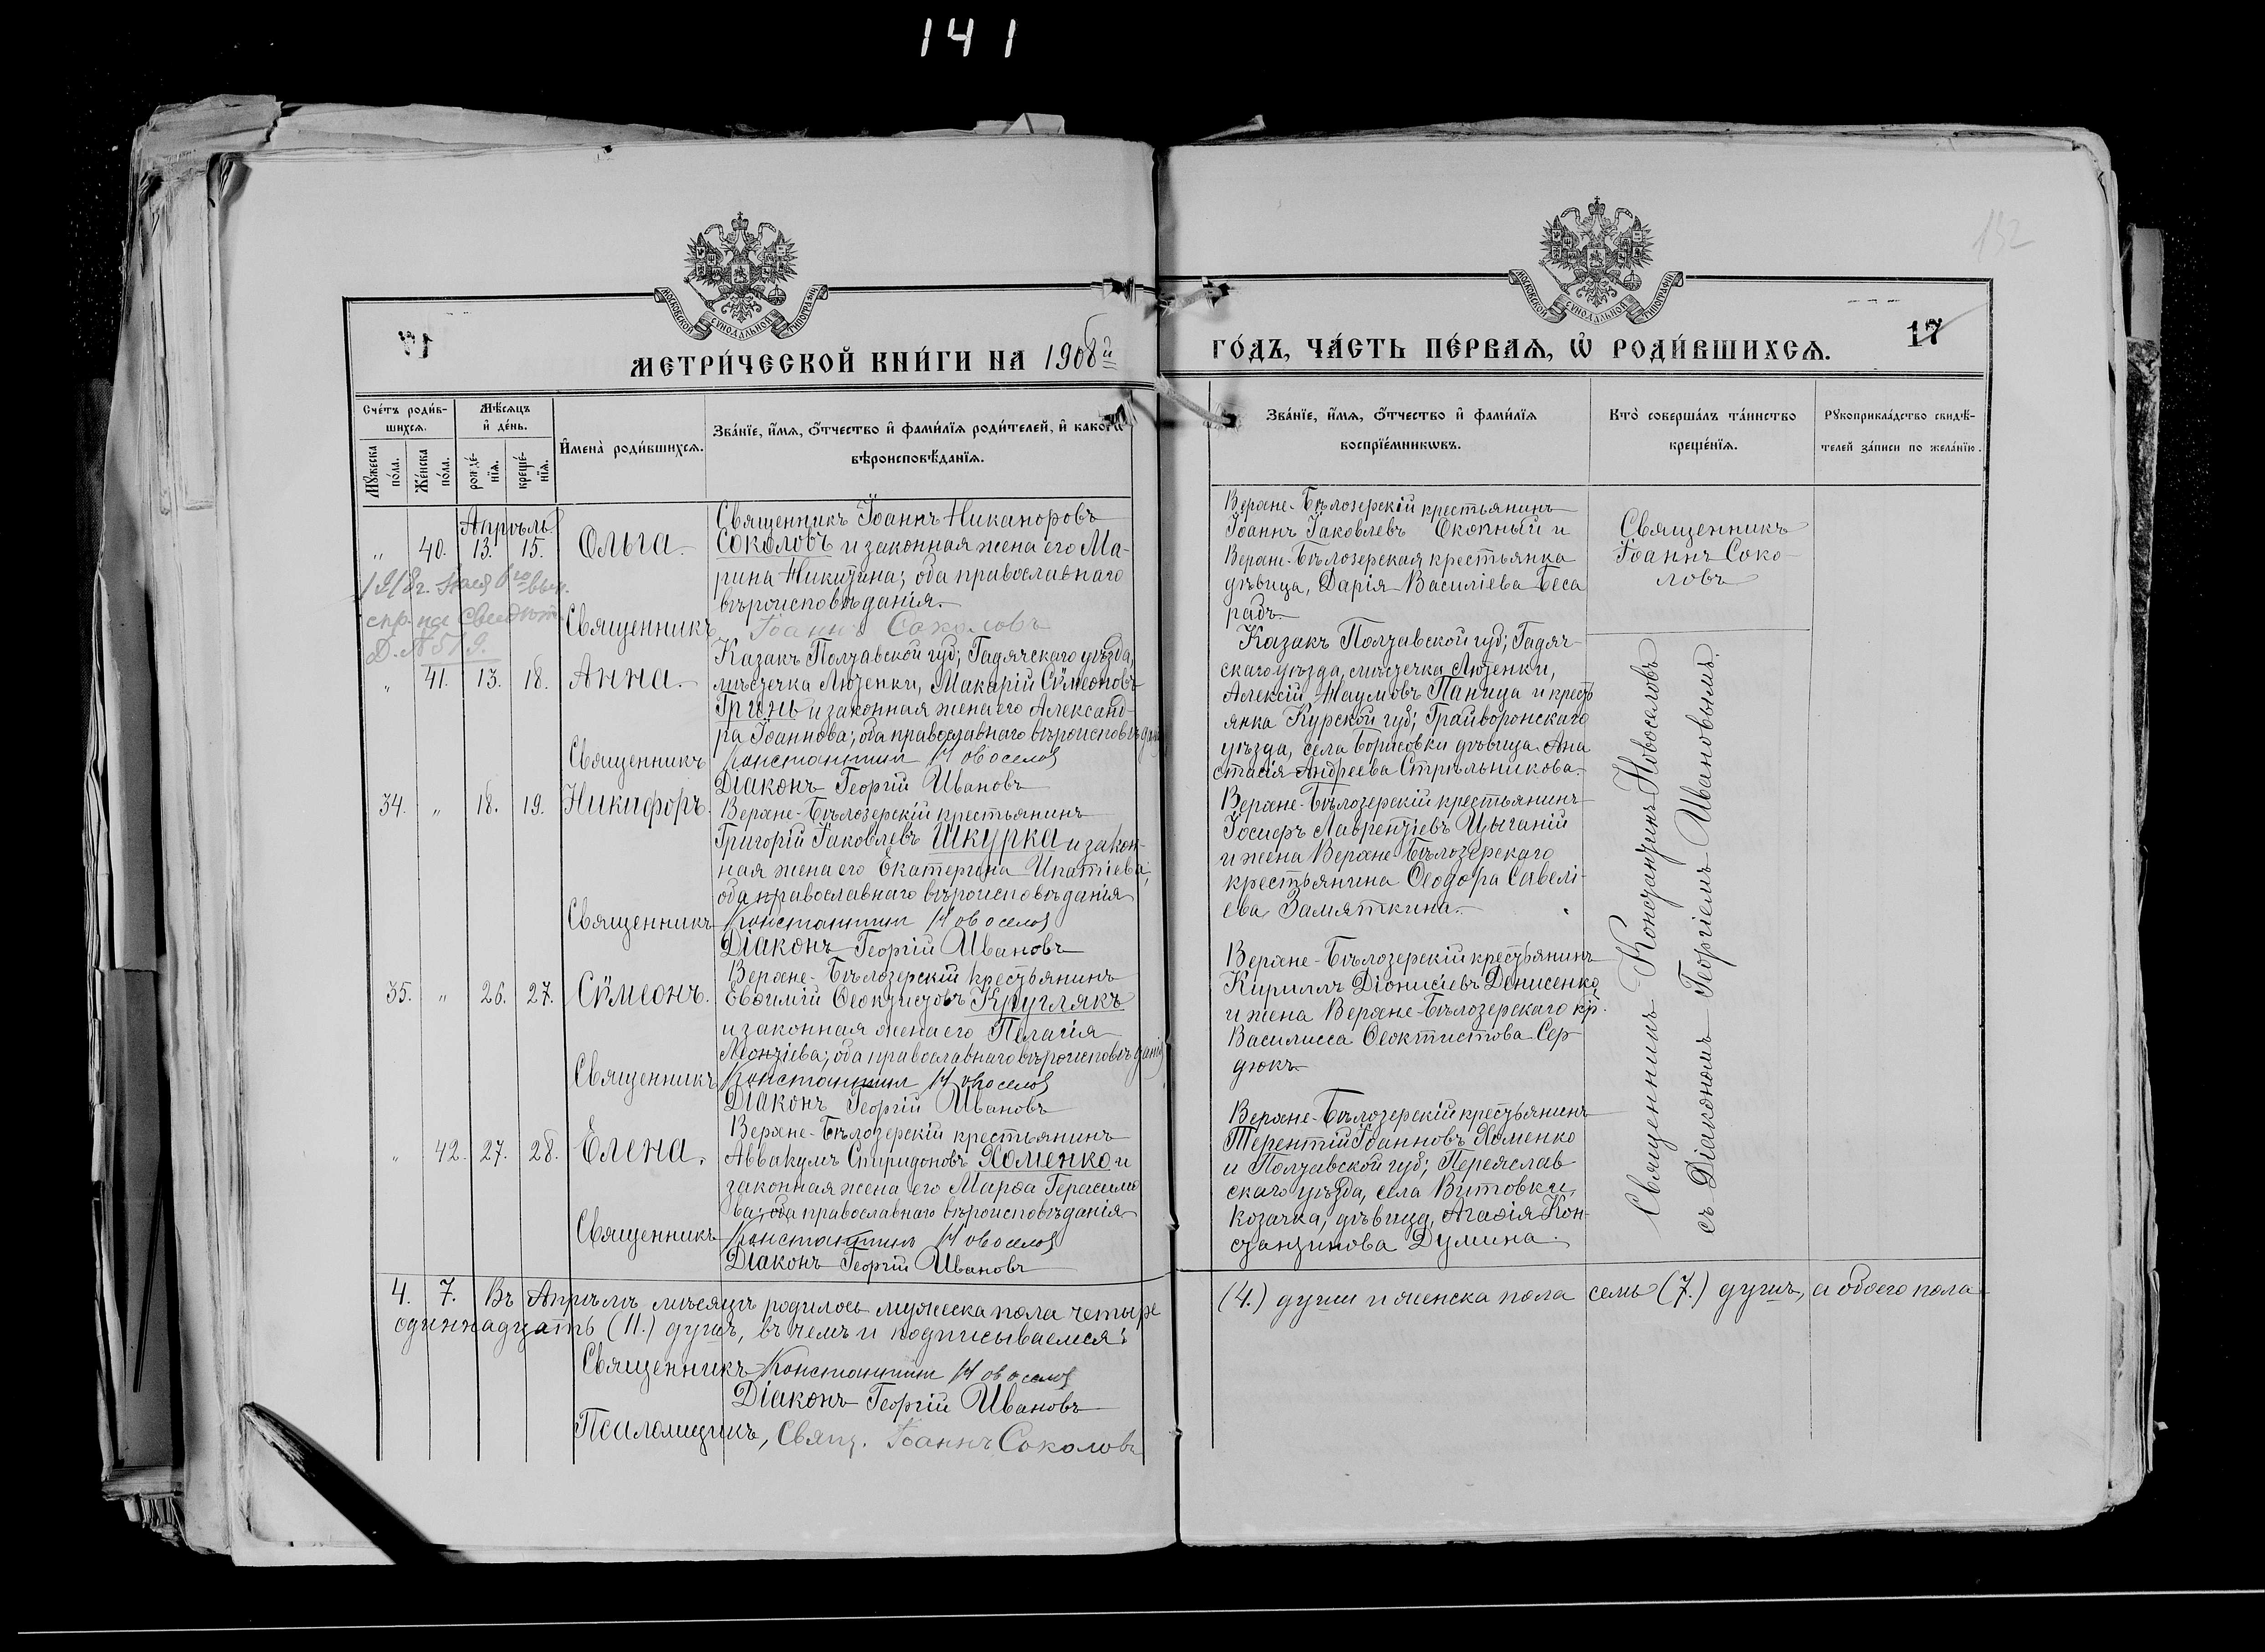 141
142
МОСКОВСКОЙ СѴНОДАЛЬНОЙ ТИПОГРАФІИ
МОСКОВСКОЙ СѴНОДАЛЬНОЙ ТИПОГРАФІИ
17
МЕТРИ́ЧЕСКОЙ КНИ́ГИ НА 1908й
ГО́ДЪ, ЧА́СТЬ ПЕ́РВАѦ, Ѡ҆ РОДИ́ВШИХСѦ.
Сче́тъ роди́в-
шихсѧ.
Мꙋ́жеска по́ла.
Же́нска по́ла.
Мѣ́сѧцъ и҆ де́нь.
рожде́-
нїѧ.
креще́-
нїѧ.
И҆мена̀ роди́вшихсѧ.
Зва́нїе, и҆́мѧ, ѻ҆́тчество и҆ фами́лїѧ роди́телей, и҆ како́гѡ
вѣроисповѣ́данїѧ.
Зва́нїе, и҆́мѧ, ѻ҆́тчество и҆ фами́лїѧ
воспрїе́мникѡвъ.
Кто̀ соверша́лъ та́инство
креще́нїѧ.
Рꙋкоприкла́дство свидѣ́-
телей за́писи по жела́нїю.
Апрѣль
„ 40. 13. 15. Ольга.
Священникъ Іоаннъ Никаноровъ
Соколовъ и законная жена его Ма-
рина Никитина; оба православнаго
вѣроисповѣданія.
Священникъ Іоаннъ Соколовъ
Верхне-Бѣлозерскій крестьянинъ
Іоаннъ Іаковлевъ Окопный и
Верхне-Бѣлозерская крестьянка
дѣвица, Дарія Василіева Беса
рабъ
Священникъ
Іоаннъ Соко-
ловъ
1918г. Мая 6го выд.
спр. на
Д. № 519.
„ 41. 13. 18. Анна.
Казакъ Полтавской губ; Гадячскаго уѣзда,
мѣстечка Лютенки, Макарій Сѵмеоновъ
Гринь и законная жена его Александ-
ра Іоаннова; оба православнаго вѣроисповѣданія
Священникъ Константинъ Новоселов
Діаконъ Георгій Ивановъ
Казакъ Полтавской губ; Гадяч-
скаго уѣзда, мѣстечка Лютенки,
Алексій Наумовъ Паница и кресть
янка Курской губ; Грайворонскаго
уѣзда, села Борисовки дѣвица Ана
стасія Андреева Стрѣльникова.
Священникъ Константинъ Новоселовъ
съ Діакономъ Георгіемъ Ивановымъ.
34. „ 18. 19. Никифоръ.
Верхне-Бѣлозерскій крестьянинъ
Григорій Іаковлевъ Шкурка и закон-
ная жена его Екатерина Ипатіева;
оба православнаго вѣроисповѣданія
Священникъ Константинъ Новоселов
Діаконъ Георгій Ивановъ
Верхне-Бѣлозерскій крестьянинъ
Іосифъ Лаврентіевъ Цыганій
и жена Верхне-Бѣлозерскаго
крестьянина Ѳеодора Савелі-
ева Замяткина.
35. „ 26. 27. Сѵмеонъ.
Верхне-Бѣлозерскій крестьянинъ
Евѳимій Ѳеоктистовъ Круглякъ
и законная жена его Пелагія
Леонтіева; оба православнаго вѣроисповѣданія
Священникъ Константинъ Новоселов
Діаконъ Георгій Ивановъ
Верхне-Бѣлозерскій крестьянинъ
Кириллъ Діонисіевъ Денисенко
и жена Верхне-Бѣлозерскаго кр.
Василисса Ѳеоктистова Сер
дюкъ
„ 42. 27. 28. Елена.
Верхне-Бѣлозерскій крестьянинъ
Аввакумъ Спиридоновъ Хоменко и
законная жена его Марѳа Герасимо
ва; оба православнаго вѣроисповѣданія
Священникъ Константинъ Новоселов
Діаконъ Георгій Ивановъ
Верхне-Бѣлозерскій крестьянинъ
Терентій Іоанновъ Хоменко
и Полтавской губ; Переяслав
скаго уѣзда, села Витовки,
козачка, дѣвица, Агаѳія Кон-
стантинова Думина.
4. 7. Въ Апрѣлѣ мѣсяцѣ родилось мужеска пола четыре (4.) души и женска пола семь (7.) душъ, а обоего пола
одиннадцать (11.) душъ, въ чемъ и подписываемся:
Священникъ Константинъ Новоселов
Діаконъ Георгій Ивановъ
Псаломщикъ, Свящ. Іоаннъ Соколовъ